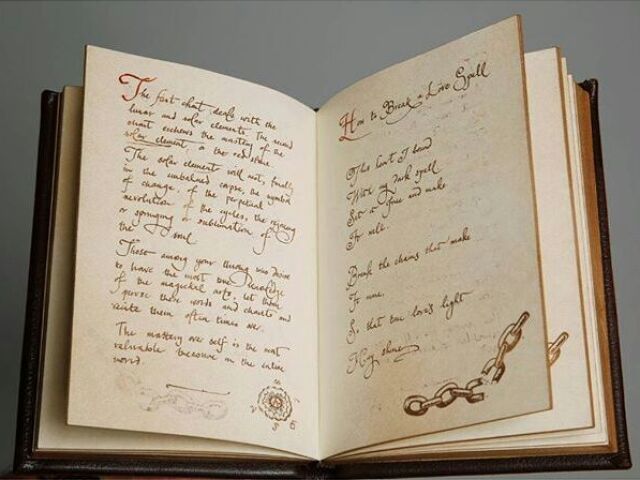 The first chart deals with the
lunar and solar elements. The second
chart eschews the mastery of the
solar element, or the red stone.
The solar element will not, finally
in the unbalmed corpse, the symbol
of change, of the perpetual
revolution of the cycles, the rejoining
or springing or sublimation of
the soul.
Those among your throng who desire
to have the most true knowledge
of the magickal arts, let them
peruse these words and charts and
recite them often times over.
The mastery over self is the most
valuable treasure in the entire
world.
S E
How to Break a Love Spell
This heart I bend
With my dark spell
Set it free and make
It well.
Break the chains that make
It mine,
So that true love's light
May shine